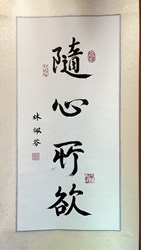 隨心所欲
林佩芬